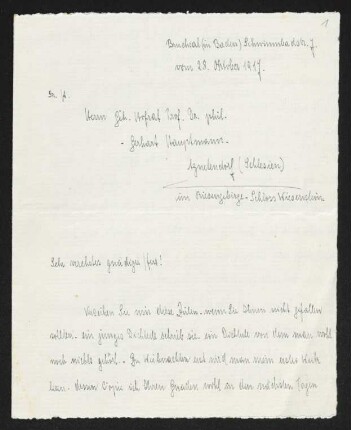 1
Bruchsal (in Baden) Schwimmbadstr. 7.
vom 28. Oktober 1917.
Sr. H.
Herrn Geh. Hofrat Prof. Dr. phil.
- Gerhart Hauptmann -
Agnetendorf (Schlesien)
im Riesengebirge - Schloss Wiesenstein
Sehr verehrter gnädiger Herr!
Verzeihen Sie mir diese Zeilen - wenn Sie Ihnen nicht gefallen
sollten - ein junges Dichterle schrieb sie - ein Dichterle von dem man wohl
noch nichts gehört. - Zu Weihnachten erst wird man mein erstes Werk
lesen - dessen Copie ich Ihren Gnaden wohl in den nächsten Tagen